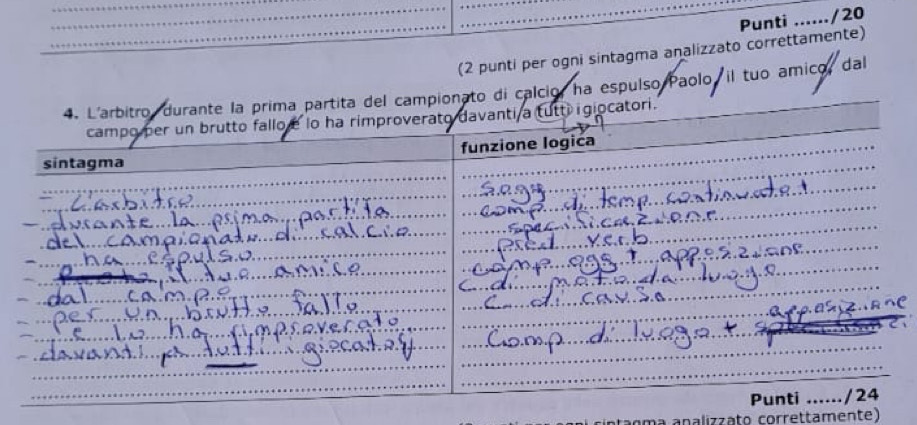 Punti ....../20
(2 punti per ogni sintagma analizzato correttamente)
4. L'arbitro durante la prima partita del campionato di calcio ha espulso Paolo, il tuo amico, dal
campo per un brutto fallo e lo ha rimproverato davanti a tutti i giocatori.
sintagma funzione logica
- L'arbitro sogg
- durante la prima partita comp. di temp. continuato +
del campionato di calcio specificazione
- ha espulso pred. verb.
- il tuo amico comp ogg + apposizione
- dal campo c. di moto da luogo
- per un brutto fallo c. di causa
- e lo ha rimproverato apposizione
- davanti a tutti i giocatori comp di luogo +
Punti ....../24
sintagma analizzato correttamente)